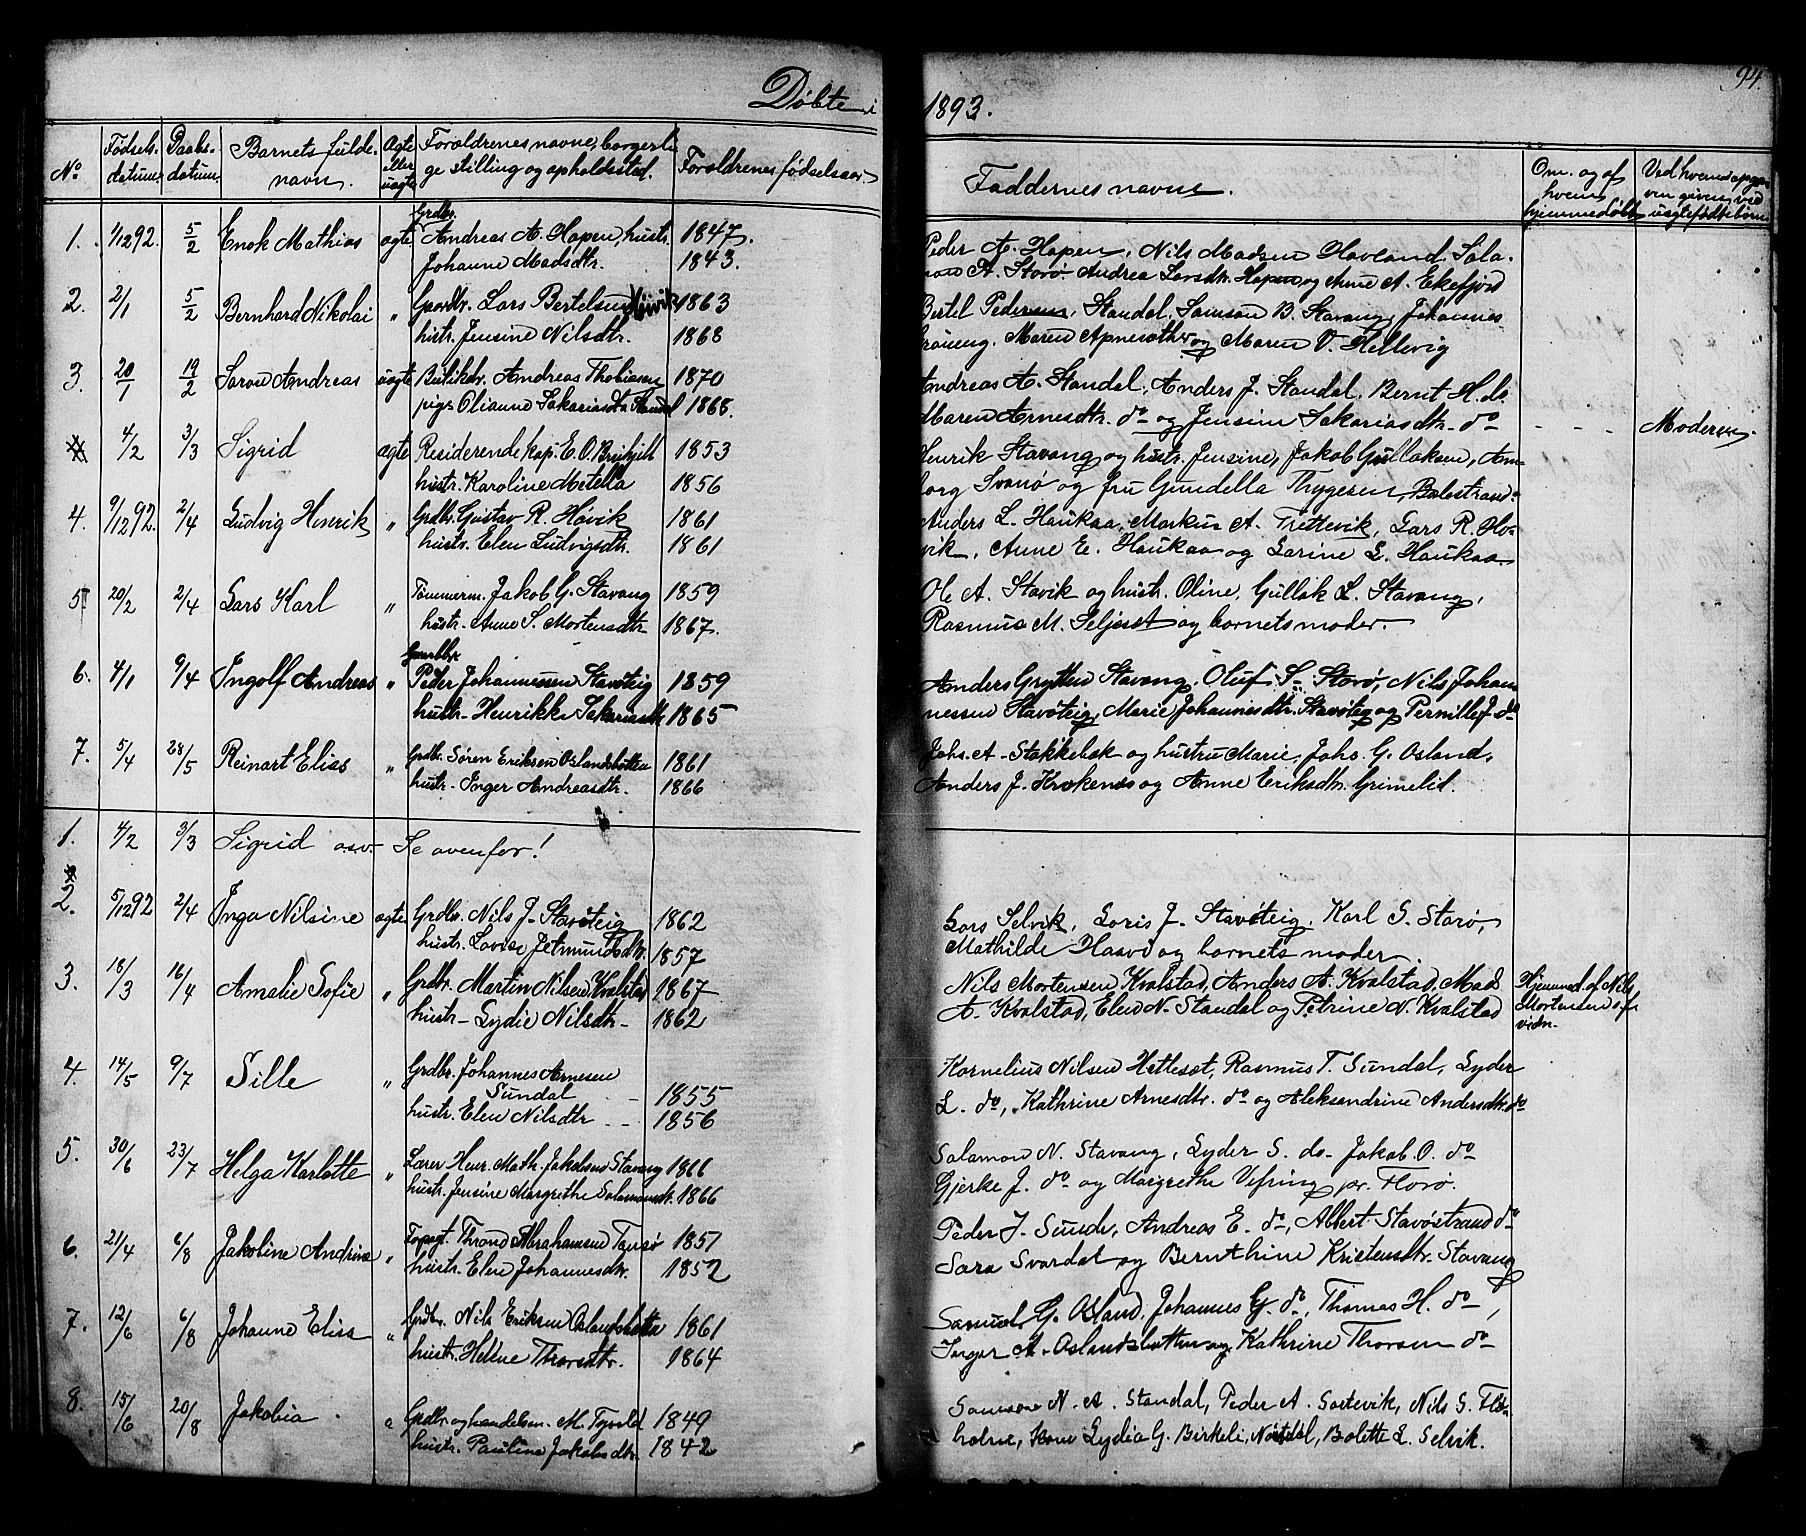 Døbte i 1893.
94.
No
Fødsels-
datum.
Daabs-
datum.
Barnets fulde
navn.
Ægte
eller
uægte
Forældrenes navne, borgerli-
ge stilling og opholdssted.
Forældrenes fødselsaar.
Faddernes navne.
Om og af
hvem
hjemmedøbt
Ved hvem opga-
ven given ved
uægtefødte børn
1. 1/12 92. 5/2 Enok Mathias ægte Grdbr. Andreas A. Hopen, hustr. 1847.
Johanne Madsdtr. 1843.
Peder A. Hopen, Nils Madsen Hovland, Sala-
mon A. Storø Andrea Larsdtr. Hopen og Anne A. Ekefjord
2. 2/1 5/2 Bernhard Nikolai " Gaardbr. Lars Bertelsen 1863
hustr. Jensine Nilsdtr. 1868
Bertel Pedersen, Standal, Samson B. Stavang, Johannes
Maren og Maren V. Hellevig
3. 20/1 19/2 Søren Andreas uægte Andreas Thobiasen 1870
pige Olianne Sakariasdtr Standal 1868.
Andreas A. Standal, Anders J. Standal, Bernt H. do
Maren Arnesdtr. do og Jensine Sakariasdtr. do - - - Moderen.
4/2 3/3 Sigrid ægte Residerende kap. E. O. 1853
hustr. Karoline Metella 1856
Henrik Stavang og hustr. Jensine, Jakob Gullaksen, Am-
borg Svanø og fru Gundella Thygesen Balestrand.
4. 9/12 92. 2/4 Ludvig Henrik " Grdbr. Gustav R. Høvik 1861
hustr. Elen Ludvigsdtr. 1861
Anders L. Haukaa, Markus A. Trettevik, Lars R. Hø-
vik, Anne E. Haukaa og Larine L. Haukaa
5. 20/2 2/4 Lars Karl " Tømmerm. Jakob G. Stavang 1859
hustr. Anne S. Mortensdtr 1867.
Ole A. Stavik og hustr. Oline, Gullak L. Stavang,
Rasmus M. Seljeset og barnets moder.
6. 4/1 9/4 Ingolf Andreas " Gaardbr. Peder Johannessen Stavøteig 1859
hustr. Henrikke Sakariasdtr 1865
Anders Grytten Stavang, Oluf S. Storø, Nils Johan-
nessen Stavøteig, Marie Johannesdtr. Stavøteig og Pernille J. do
7. 5/4 28/5 Reinart Elias " Grdbr. Søren Eriksen Oslandsbotten 1861
hustr. Inger Andreasdtr. 1866
Johs. A. Stokkebøk og hustru Marie, Johs. G. Osland,
Anders J. Krokenes og Anne Eriksdtr. Grimelid.
1. 4/2 3/3 Sigrid osv. Se ovenfor!
2. 5/12 92 2/4 Inga Nilsine ægte Grdbr. Nils J. Stavøteig 1862
hustr. Lovise Jetmundsdtr. 1857
Lars Selvik, Loris J. Stavøteig, Karl S. Storø,
Mathilde Hasvo og barnets moder.
3. 18/3 16/4 Amalie Sofie " Grdbr. Martin Nilsen Kvalstad 1867
hustr. Lydie Nilsdtr. 1862
Nils Mortensen Kvalstad, Anders A. Kvalstad, Mads
A. Kvalstad, Elen N. Standal og Petrine N. Kvalstad
Hjemmed. af Nils
Mortensen
4. 14/5 9/7 Sille " Grdbr. Johannes Arnesen
Sundal 1855
hustr. Elen Nilsdtr 1856
Kornelius Nilsen Hetleset, Rasmus T. Sundal, Lyder
L. do, Kathrine Arnesdtr. do og Aleksandrine Andersdtr. do
5. 30/6 23/7 Helga Karlotte " Lærer Henr. Math. Jakobsen Stavang 1866
hustr. Jensine Margrethe Salamonsdtr. 1866
Salamon N. Stavang, Lyder S. do Jakob O. do
Gjerke J. do og Margrethe Vefring pr. Florø.
6. 21/4 6/8 Jakobine Andrine " Thrond Abrahamsen Tansø 1857
hustr. Elen Johannesdtr. 1852
Peder J. Sunde, Andreas E. do, Albert Stavøstrand do
Sara Svardal og Bernthine Kristensdtr. Stavang
7. 12/6 6/8 Johanne Elisa " Grdbr. Nils Eriksen Oslandsbotten 1861
hustr. Helene Thorsdtr. 1864
Samuel G. Osland, Johannes G. do, Thomas H. do,
Inger A. Oslandsbotten og Kathrine Thorsen do
8. 15/6 20/8 Jakobia. " Grdbr. og handelsm. M. Tyvold 1849
hustr. Pauline Jakobsdtr. 1842
Samson N. A. Standal, Peder A. Sortevik, Nils S. Flø-
holm, Kone Lydia G. Birkeli, Nordal, Bolette L. Selvik.